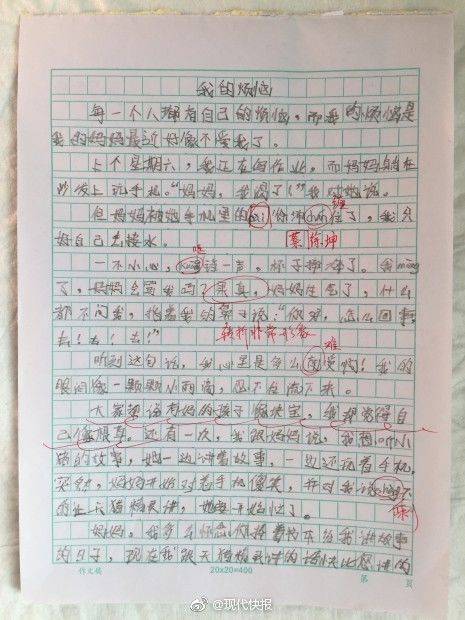 我的烦恼
每一个人都有自己的烦恼，而我的烦恼是
我的妈妈最近好像不爱我了。
上个星期六，我正在写作业，而妈妈躺在
沙发上玩手机。“妈妈，我渴了！”我对她说。
但妈妈被她手机里的 你 住了，我只
缠
好自己去接水。
蔡徐坤
一不小心，“ 一声，杯子摔碎了。我
了，妈妈会骂我吗？果真，妈妈生气了，什么
都不问我，指着我的鼻子说：“你呀，怎么回事，
去！去！去！”
转折非常形象
难
听到这句话，我心里是多么 受啊！我的
眼泪像一颗颗小雨滴，忍不住流下来。
大家都说有妈的孩子像块宝，我却觉得自
己像根草。还有一次，我跟妈妈说，我想听小
猪的故事，她一边讲着故事，一边还看着手机，
突然，妈妈开始对着手机傻笑，并对我说
陪
止天猫精灵讲，她
妈妈，我多么怀念 给我讲故事
的日子，现在我跟天猫精灵讲的话 比您讲的
作文稿
20×20=400
第 页
@现代快报